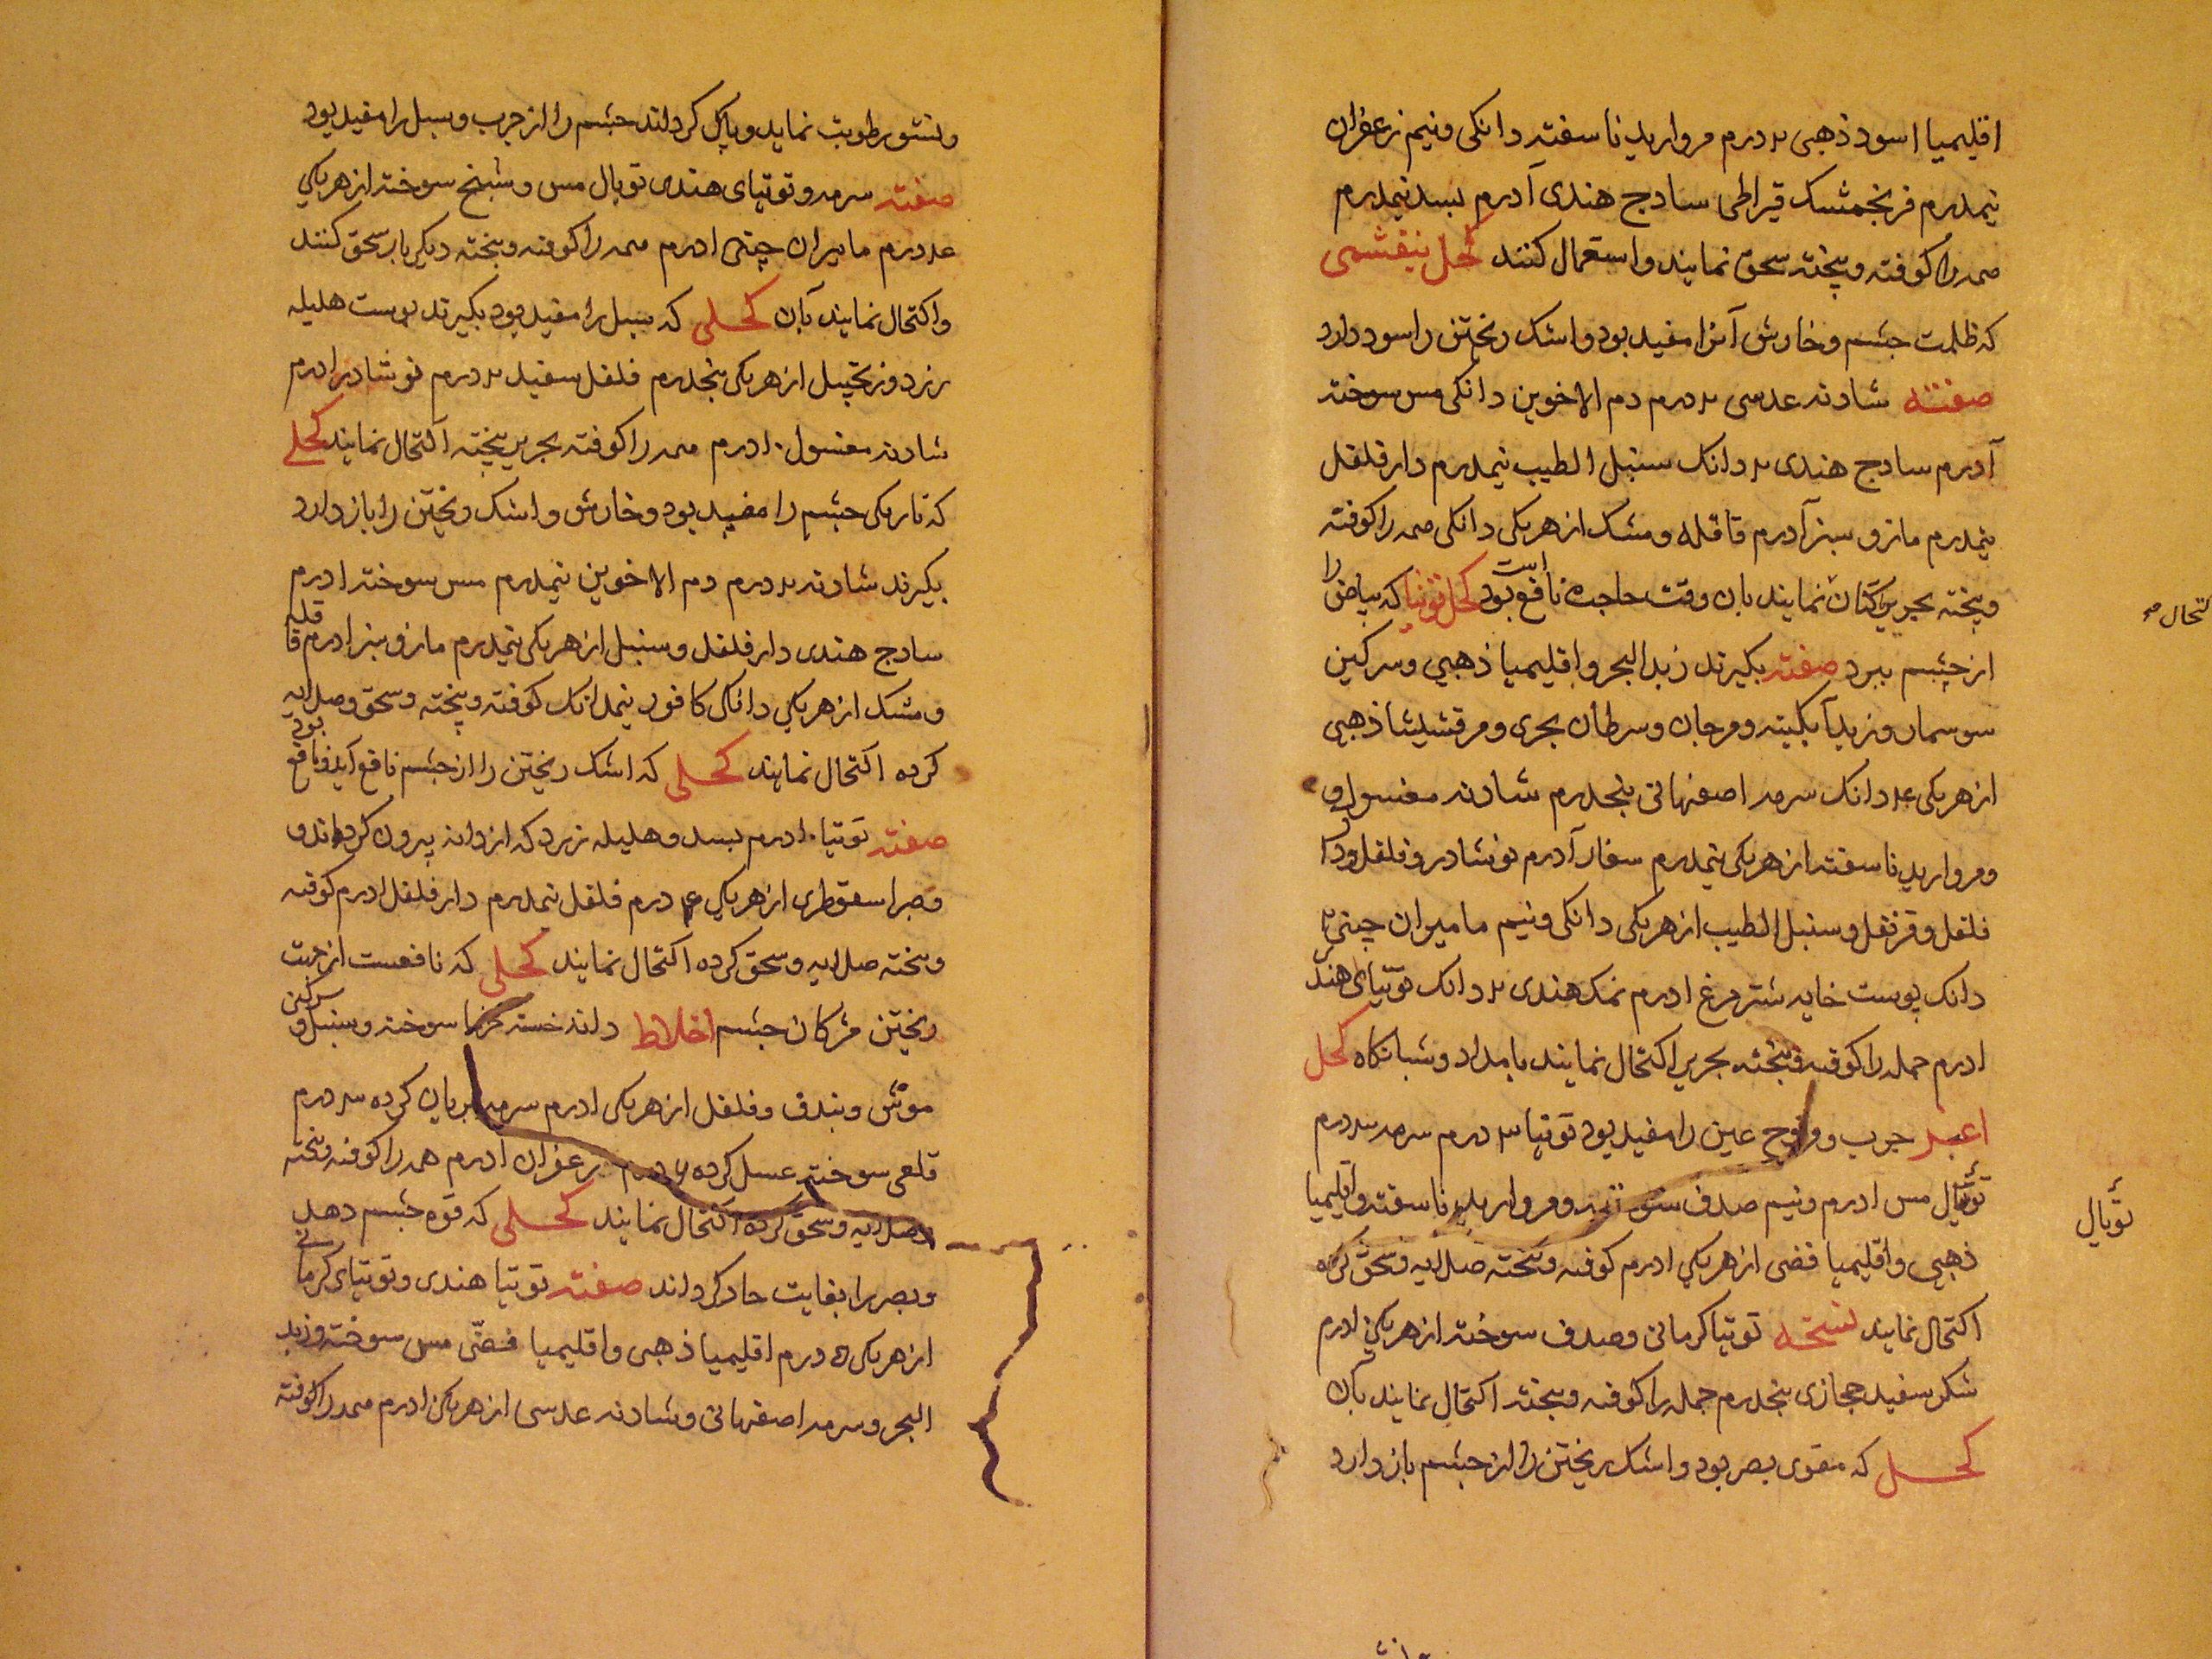 اقلیمیا اسود ذهبی ۲ درم مروارید ناسفته دانکی ونیم زعفران
نیمدرم فرنجمشک قیراطی سادج هندی آدرم بسد نیمدرم
همه را کوفته وبیخته سحق نمایند واستعمال کنند کحل بنفشمی
که ظلمت جشم وخارش آنرا مفید بود واشک ریختن را سود دارد
صفته شادنه عدسی ۲ درم دم الاخوین دانکی مس سوخته
آدرم سادج هندی ۲ دانک سنبل الطیب نیمدرم دارفلفل
نیمدرم مازو سبز آدرم قاقله ومشک از هریکی دانکی همه را کوفته
وبیخته بحریر اکتحال نمایند بان وقت حاجت نافع بود کحل توتیا که بیاض را
کتحال صح
از جشم ببرد صفته بکیرند زبد البحر واقلیمیا ذهبی وسرکین
سوسمار وزبد آبکینه ومرجان وسرطان بحری ومرقشیشا ذهبی
از هریکی ۴ دانک سرمه اصفهانی پنجدرم شادنه مغسول و
ومروارید ناسفته از هریکی نیمدرم سفار آدرم نوشادر وفلفل ودا
فلفل وقرنفل وسنبل الطیب از هریکی دانکی ونیم مامیران چینی ۲
دانک پوست خایه شترمرغ ادرم نمک هندی ۲ دانک توتیای هند
ادرم جمله را کوفته وبیخته بحریر اکتحال نمایند بامداد وشبانکاه کحل
اغبر جرب ووجع عین را مفید بود توتیا ۳ درم سرمه ۳ درم
توبال مس ادرم ونیم صدف سوخته ومروارید ناسفته واقلیمیا
توبال
ذهبی واقلیمیا فضی از هریکی ادرم کوفته وبیخته صلایه وسحق کرده
اکتحال نمایند نسخه توتیا کرمانی وصدف سوخته از هریکی ادرم
شکر سفید حجازی پنجدرم جمله را کوفته وبیخته اکتحال نمایند بآن
کحل که مقوی بصر بود واشک ریختن را از جشم باز دارد
ونشو رطوبت نماید وپاک کرداند جشم را از جرب وسبل را مفید بود
صفته سرمه وتوتیای هندی توبال مس وشبنج سوخته از هریکی
۴ درم مامیران چینی ادرم همه را کوفته وبیخته دیکر بار سحق کنند
واکتحال نمایند بآن کحلی که سبل را مفید بود بکیرند پوست هلیله
زرد وزنجبیل از هریکی پنجدرم فلفل سفید ۲ درم نوشادر ادرم
شادنه مغسول ۱۰ درم همه را کوفته بحریر بیخته اکتحال نمایند کحلی
که تاریکی جشم را مفید بود وخارش واشک ریختن را باز دارد
بکیرند شادنه ۲ درم دم الاخوین نیمدرم مس سوخته ادرم
سادج هندی دارفلفل وسنبل از هریکی نیمدرم مازو سبز ادرم قاقله
ومشک از هریکی دانکی کافور نیمدانک کوفته وبیخته وسحق وصلایه
کرده اکتحال نمایند کحلی که اشک ریختن را از جشم نافع آید ونافع بود
صفته توتیا ۱۰ درم بسد وهلیله زرد که از دانه بیرون کرده اند و
وصبر اسقوطری از هریکی ۴ درم فلفل نیمدرم دارفلفل ادرم کوفته
وبیخته صلایه وسحق کرده اکتحال نمایند کحلی که نافعست از جهت
ریختن مژکان جشم اخلاط دانه خسته خرما سوخته وسنبل و سرکین
موش وبندق وفلفل از هریکی ادرم سرمه بریان کرده ۳ درم
قلعی سوخته عسل کرده ۶ درم زعفران ادرم همه را کوفته وبیخته
وصلایه وسحق کرده اکتحال نمایند کحلی که قوه جشم دهد
وبصر را بغایت حاد کرداند صفته توتیا هندی وتوتیای کرمانی
از هریکی ۵ درم اقلیمیا ذهبی واقلیمیا فضی مس سوخته وزبد
البحر وسرمه اصفهانی وشادنه عدسی از هریکی ادرم همه را کوفته